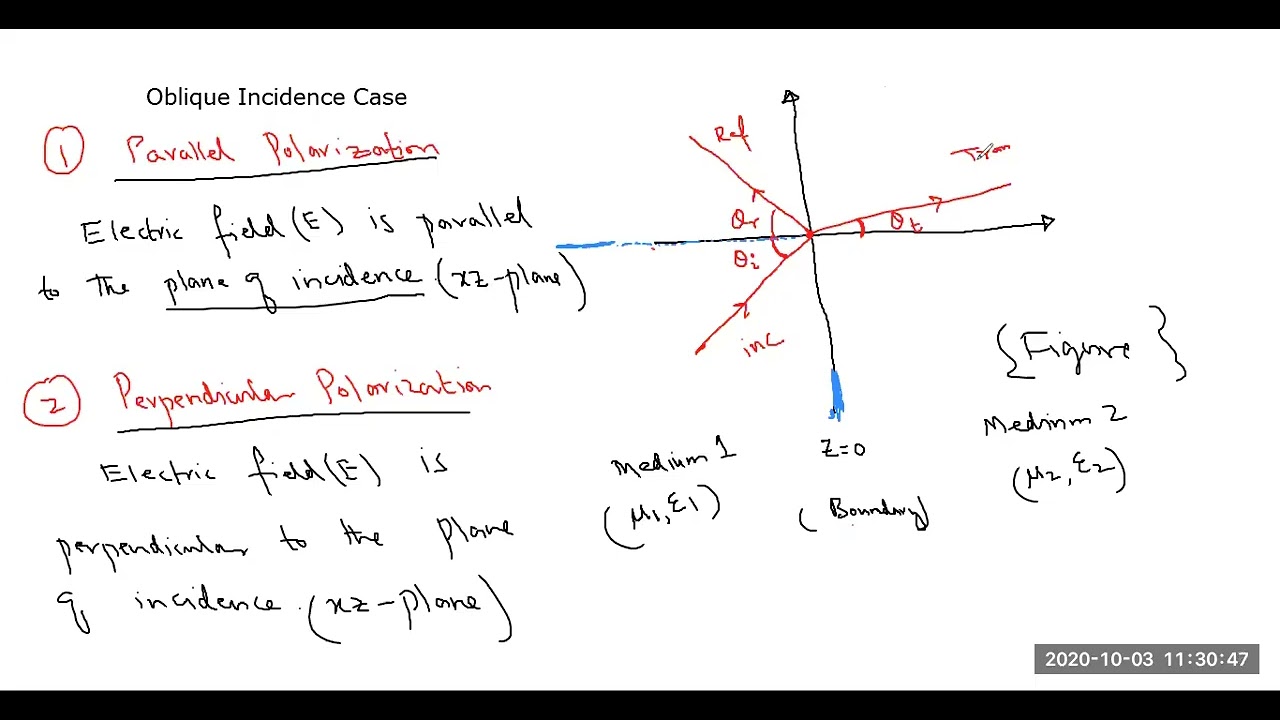 Oblique Incidence Case
① Parallel Polarization
Electric field (E) is parallel
to the plane of incidence (xz-plane)
② Perpendicular Polarization
Electric field (E) is
perpendicular to the plane
of incidence. (xz-plane)
Ref
Tran
θr
θt
θi
inc
{Figure}
Medium 1
(μ1, ε1)
Z=0
(Boundary)
Medium 2
(μ2, ε2)
2020-10-03 11:30:47